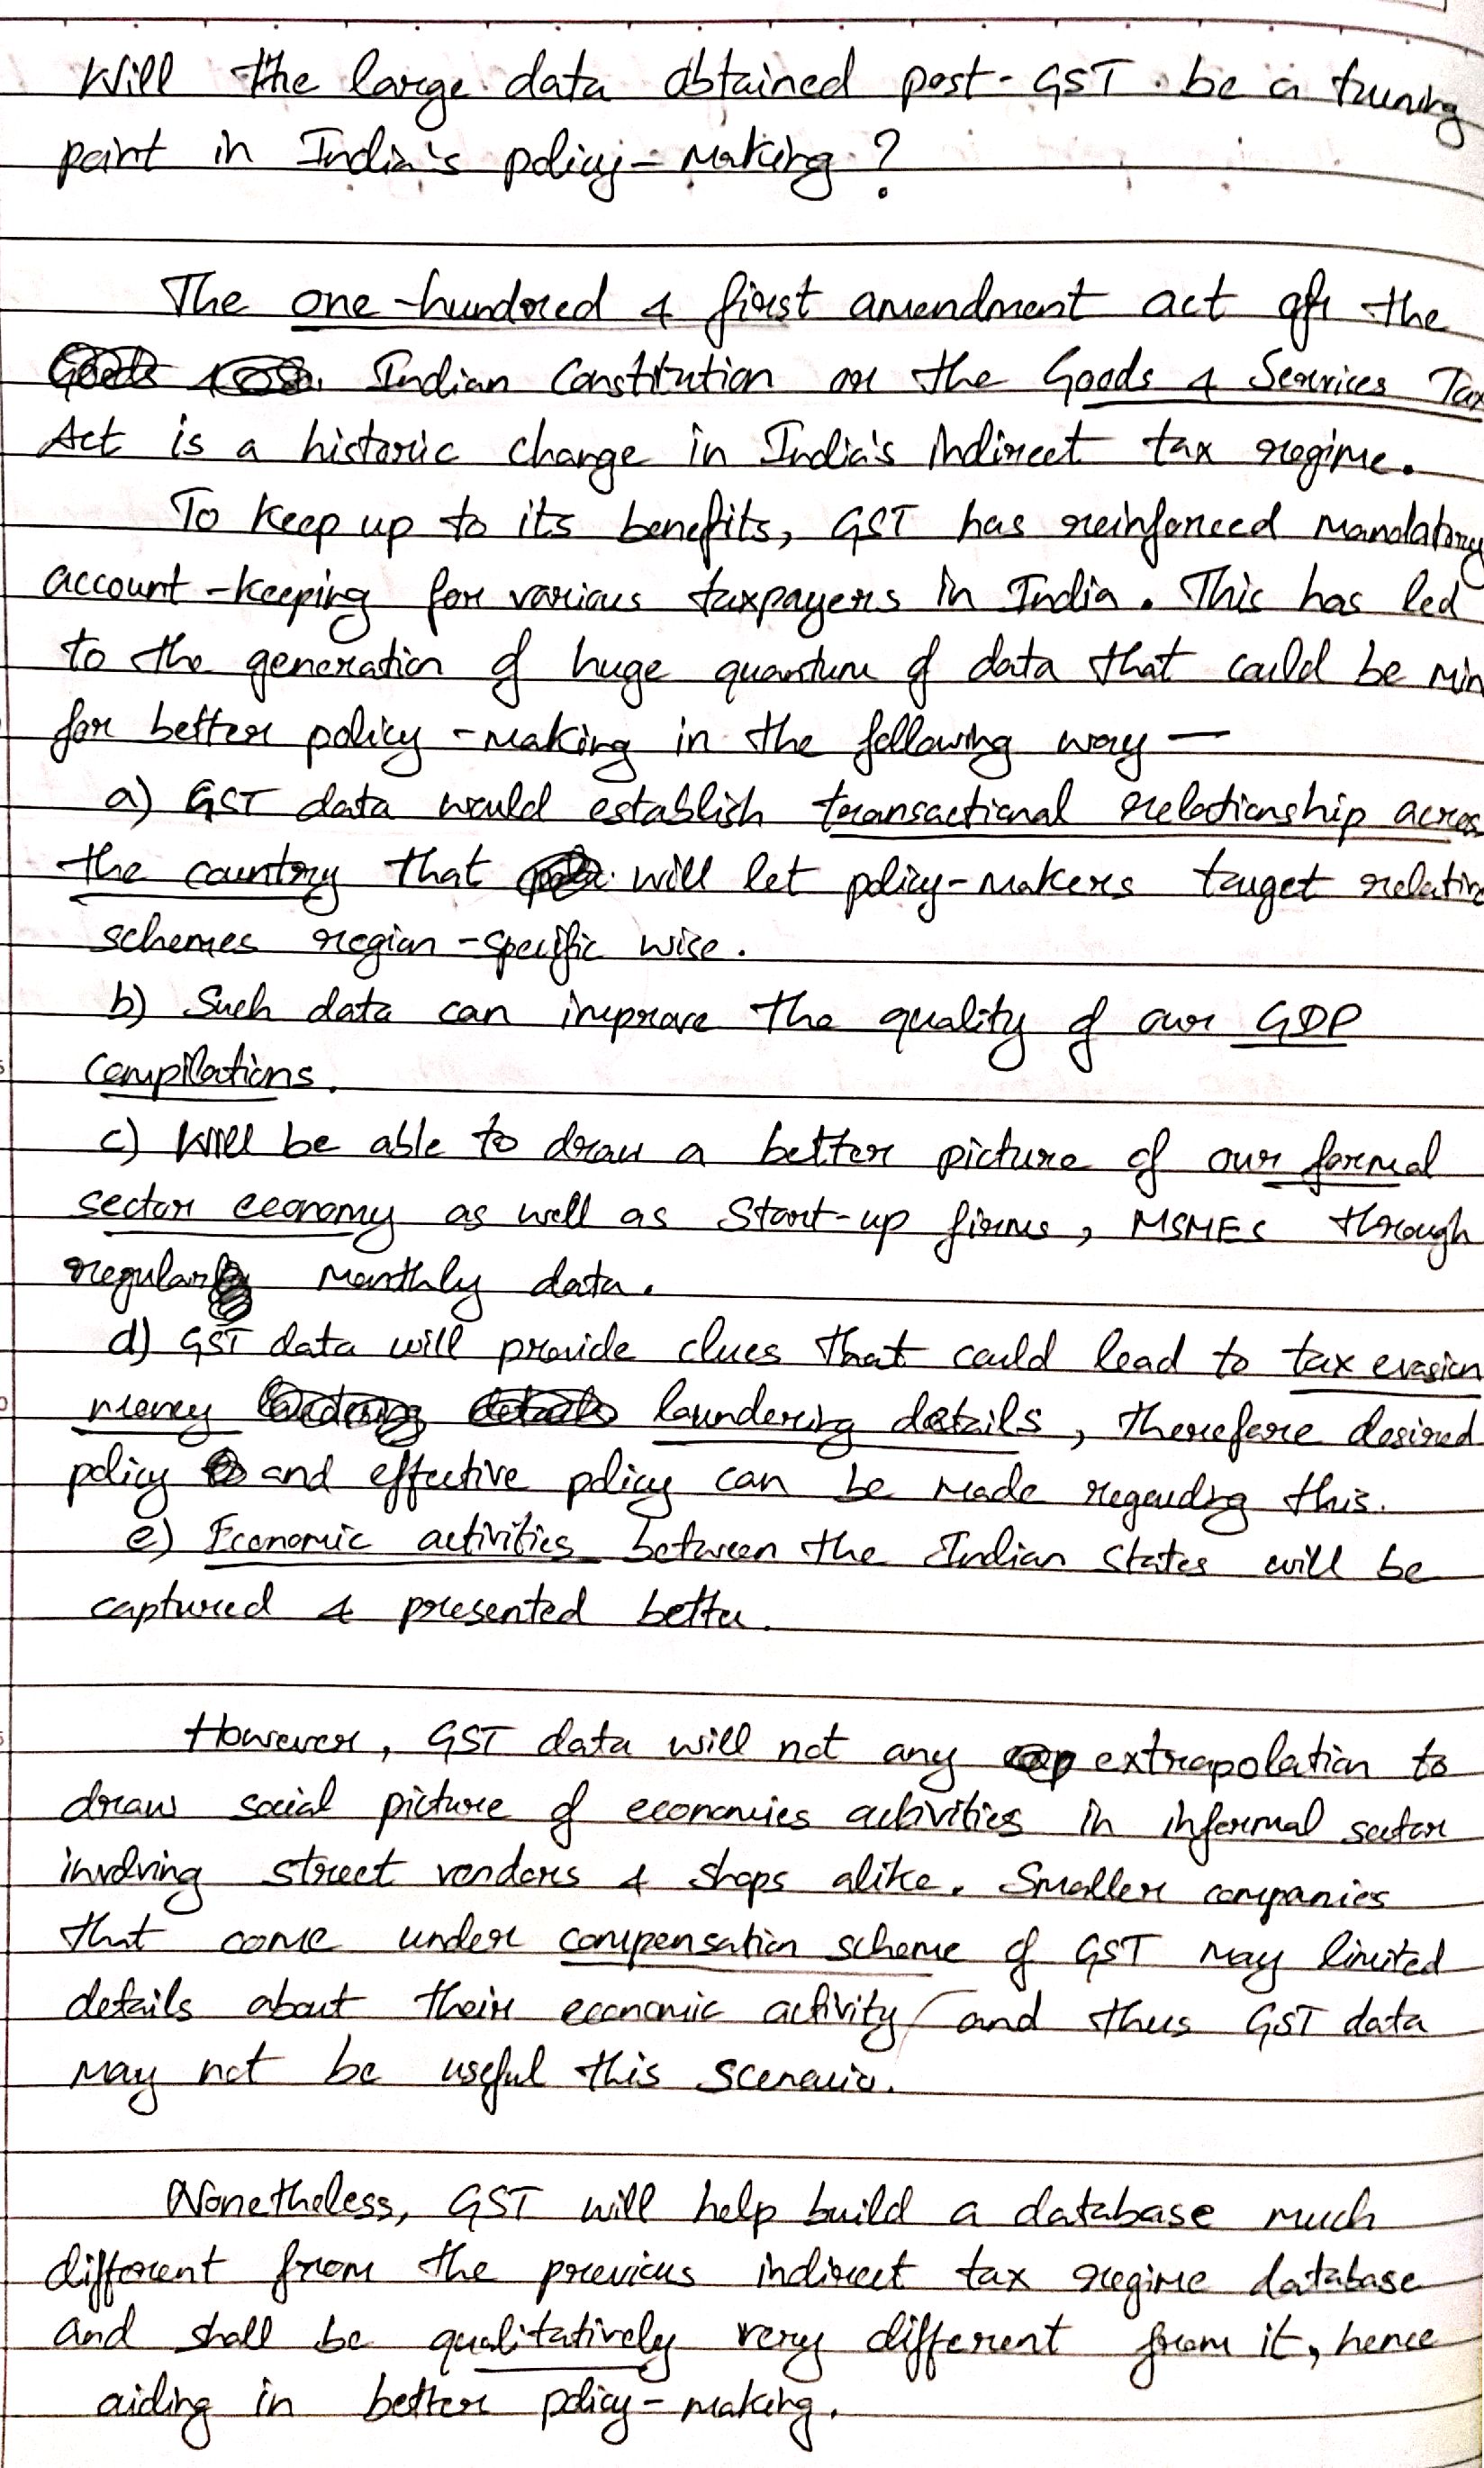 Will the large data obtained post-GST be a turning
point in India's policy-making?
The one-hundred & first amendment act of the
Indian Constitution or the Goods & Services Tax
Act is a historic change in India's indirect tax regime.
To keep up to its benefits, GST has reinforced mandatory
account-keeping for various taxpayers in India. This has led
to the generation of huge quantum of data that could be min
for better policy-making in the following way —
a) GST data would establish transactional relationship across
the country that will let policy-makers target relative
schemes region-specific wise.
b) Such data can improve the quality of our GDP
compilations.
c) Will be able to draw a better picture of our formal
sector economy as well as Start-up firms, MSMEs through
regular monthly data.
d) GST data will provide clues that could lead to tax evasion
money laundering details, therefore desired
policy and effective policy can be made regarding this.
e) Economic activities between the Indian States will be
captured & presented better.
However, GST data will not any extrapolation to
draw social picture of economies activities in informal sector
involving street vendors & shops alike. Smaller companies
that come under compensation scheme of GST may limited
details about their economic activity and thus GST data
may not be useful this scenario.
Nonetheless, GST will help build a database much
different from the previous indirect tax regime database
and shall be qualitatively very different from it, hence
aiding in better policy-making.